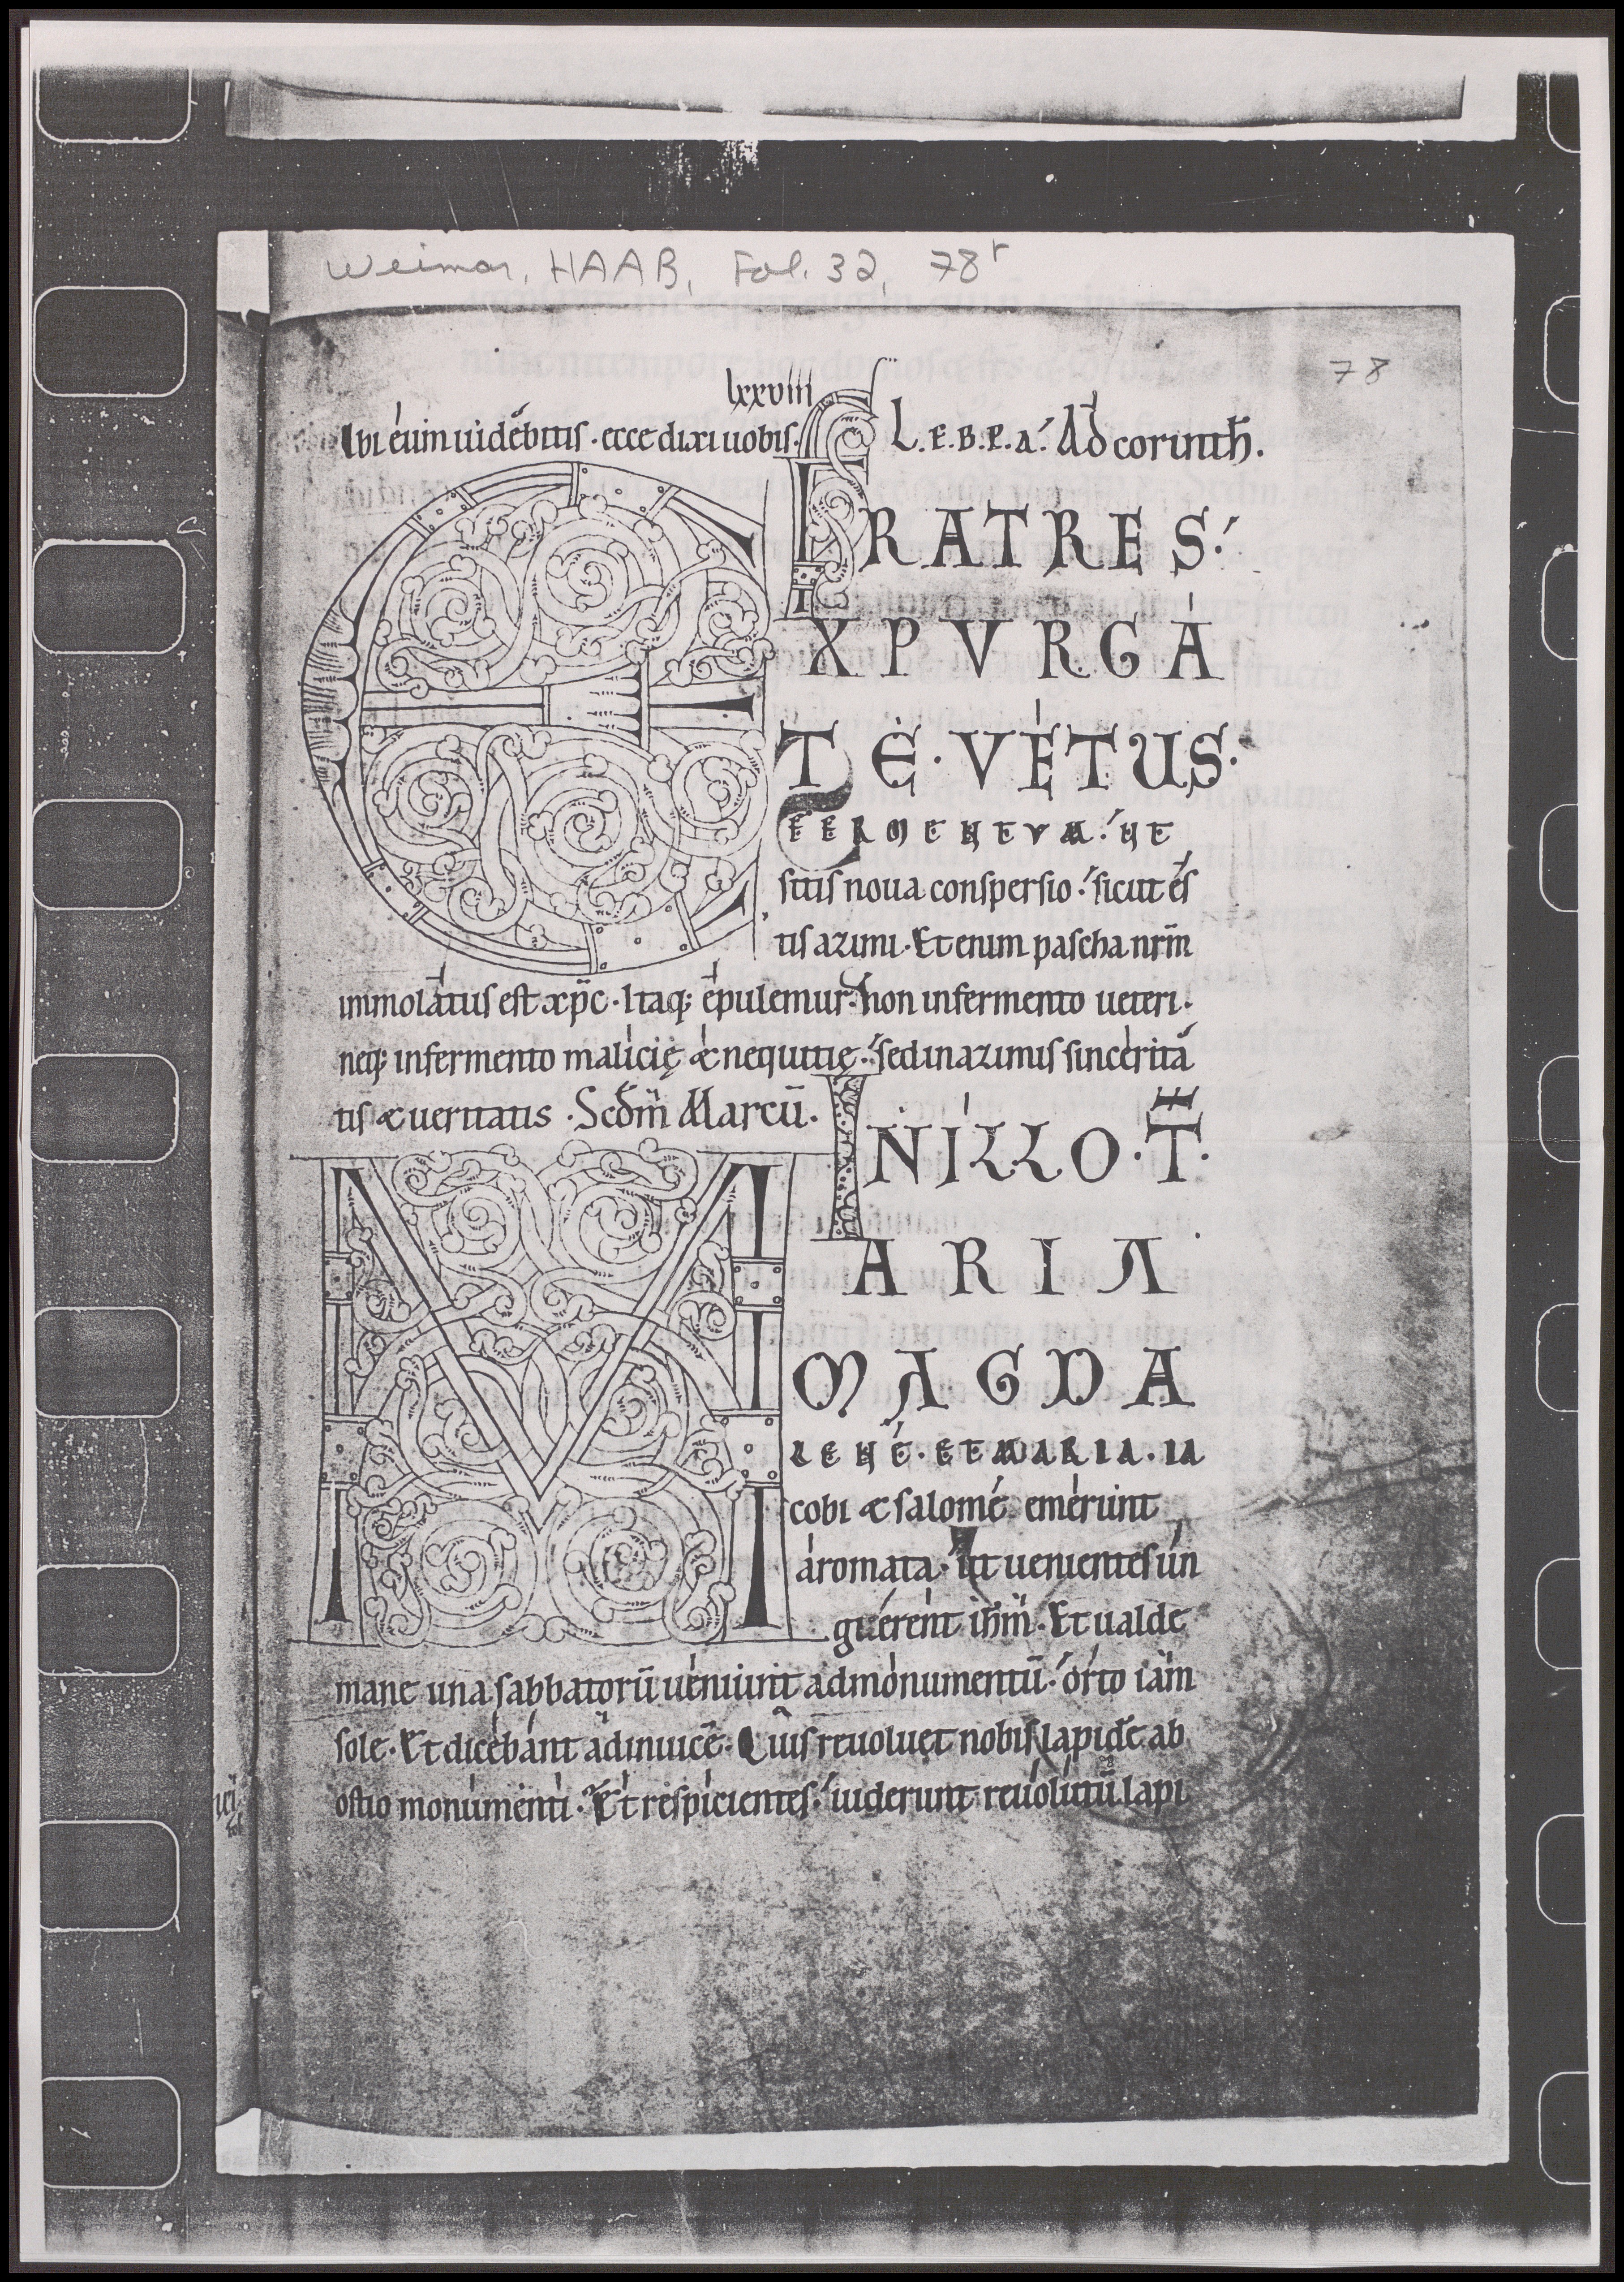 Weimar, HAAB, Fol. 32, 78r
78
lxxviii
Ibi eum uidebitis · ecce dixi uobis. L.E.B.P.A. Ad corinth.
FRATRES
EXPVRGA
TE · VETUS ·
FERMENTVM. UT
sitis noua conspersio. sicut es
tis azimi. Etenim pascha nrm̄
immolatus est xp̄c. Itaq; epulemur. non infermento ueteri.
neq; infermento malicię & nequitię. sed inazimis sincerita
tis & ueritatis. Scdm̄ Marcū.
INILLO · T̄ ·
MARIA
MAGDA
LENE · ET MARIA · IA
cobi & salome emerunt
aromata. ut uenientes un
guerent ih̄m. Et ualde
mane una sabbatorū ueniunt ad monumentū. orto iam
sole. Et dicebant adinuicē. Quis reuoluet nobis lapidē ab
ostio monumenti. Et respicientes. uiderunt reuolutū lapi